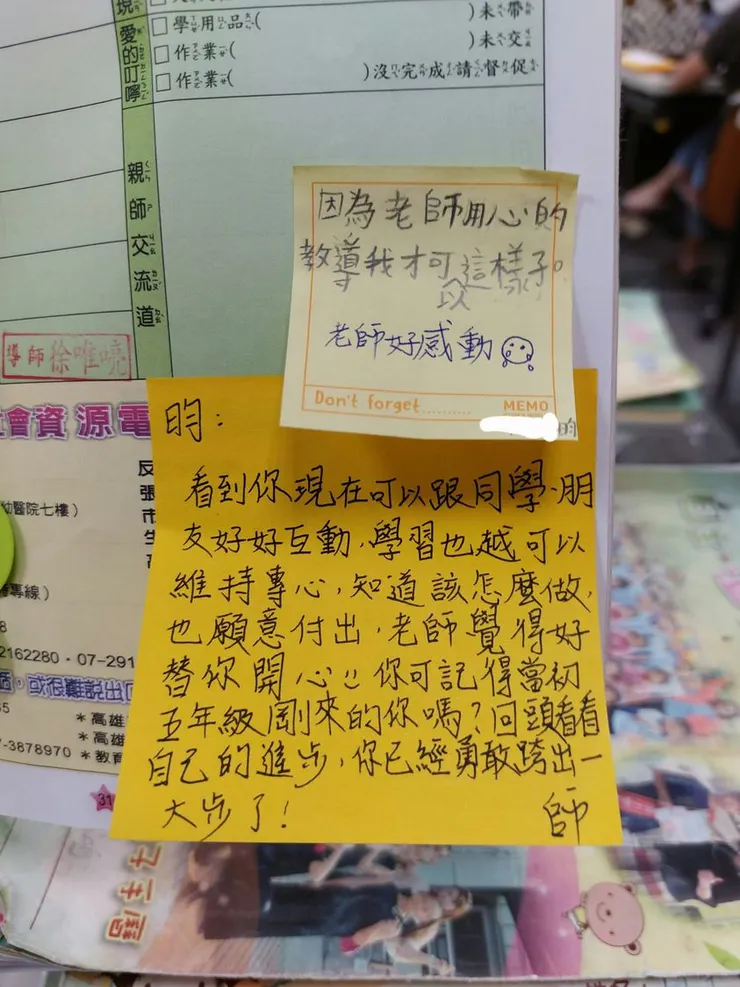 現
愛的叮嚀
□學用品( )未帶
□作業( )未交
□作業( )沒完成請督促
親師交流道
導師徐唯嶢
會資源電
幼醫院七樓)
專線)
2162280·07-291
個,或很難説出
*高雄
*高雄
7-3878970 *教育
31
因為老師用心的
教導我才可以這樣子。
老師好感動
Don't forget..........
MEMO
昀
昀:
看到你現在可以跟同學、朋
友好好互動,學習也越可以
維持專心,知道該怎麼做,
也願意付出,老師覺得好
替你開心!!你可記得當初
五年級剛來的你嗎?回頭看看
自己的進步,你已經勇敢跨出一
大步了!
師